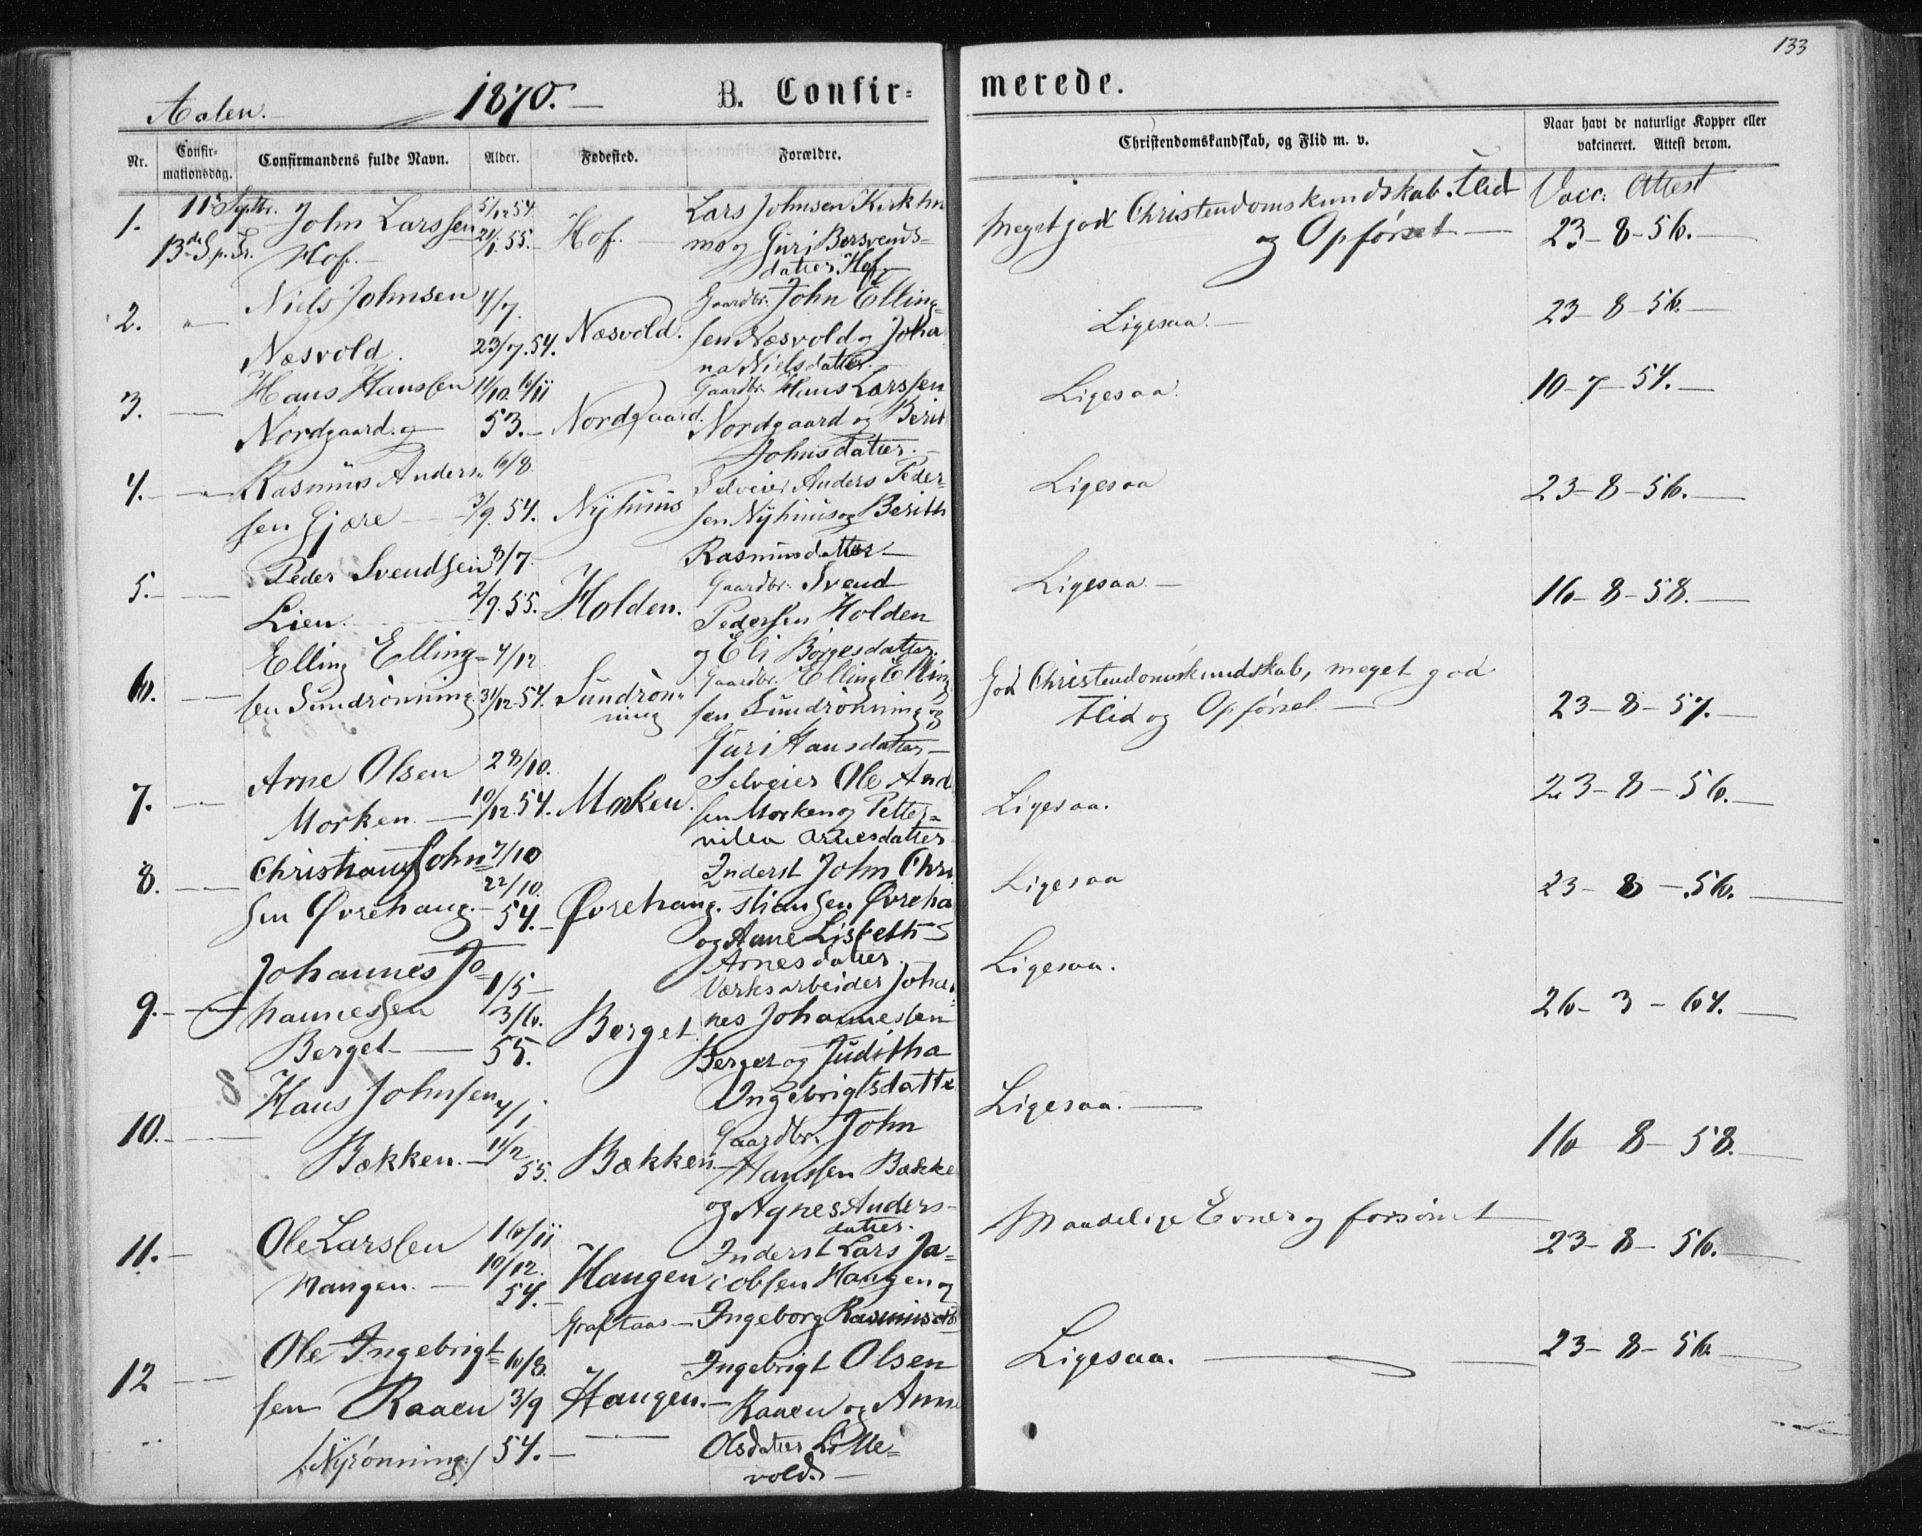 133
Aalen. 1870. B. Confirmerede.
Nr. Confirmationsdag. Confirmandens fulde Navn. Alder. Fødested. Forældre. Christendomskundskab, og Flid m. v. Naar havt de naturlige Kopper eller vakcineret. Attest derom.
1. 11 Septbr. John Larssen 5/12 54. Hof. Lars Johnsen Kirkhus Meget god Christendomskundskab. Flid Vacc. Attest
13de S. p. Tr. Hof. 21/1 55. mo og Guri Borsvends- og Opførsel 23-8-56.
datter Hof
2. " Niels Johnsen 4/7. Næsvold. Gaardbr. John Elling- Ligesaa. 23-8-56.
Næsvold. 23/7.54. sen Næsvold og Joha
na Nielsdatter.
3. Hans Hanssen 11/10. 6/11 Nordgaard. Gaardbr. Hans Larssen Ligesaa. 10-7-54.
Nordgaard. 53. Nordgaard og Berit
Johnsdatter.
4. Rasmus Anders- 6/8 Nyhuus Selveier Anders Peder- Ligesaa 23-8-56.
sen Gjære 3/9.54. sen Nyhuus og Berith
Rasmusdatter
5. Peder Svendsen 8/7. Holden. Gaardbr. Svend Ligesaa. 16-8-58.
Lien. 2/9.55. Pedersen Holden
og Eli Børgesdatter.
6. Elling Elling- 4/12 Sundrøn- Gaardbr. Elling Elling God Christendomskundskab, meget god
sen Sundrønning 31/12.54. ning sen Sundrønning og Flid og Opførsel 23-8-57.
Guri Hansdatter
7. Arne Olsen 28/10. Morken. Selveier Ole And Ligesaa. 23-8-56.
Morken. 10/12.54. sen Morken og Petter-
nilla Arnesdatter
8. Christian John- 7/10 Øvrehaug. Inderst John Chri Ligesaa 23-8-56.
sen Øvrehaug. 22/10. 54. stiansen Øvreha
og Anne Lisbeth
Arnesdatter.
9. Johannes Jo- 1/5 Berget. Værksarbeider Johan- Ligesaa. 26-3-64.
hannessen 3/6. nes Johannessen
Berget 55. Berget og Juditha
Ingebrigtsdatte
10. Hans Johnsen 4/1 Bækken. Gaardbr. John Ligesaa. 16 8-58.
Bækken. 11/2 55. Hanssen Bække
og Agnes Anders-
datter.
11. Ole Larssen 16/11 Haugen Inderst Lars Ja- Maadelige Evner og forsømt 23-8-56.
Haugen. 10/12. 54. cobsen Haugen og
Graftaas Ingeborg Rasmusd
12 Ole Ingebrigt- 6/8. Haugen. Ingebrigt Olsen Ligesaa. 23-8-56
sen Raaen 3/9 Raaen og Anne
/:Nyrønning:/ 54. Olsdatter Lille-
vold.